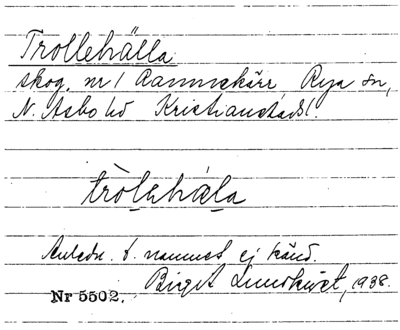 Trollehälla
skog, nr 1 Rammekärr, Rya sn,
N. Åsbo hd Kristianstads l.
tròlehäla
Anledn. t. namnet ej känd.
Birgit Lundkvist, 1938.
Nr 5502.